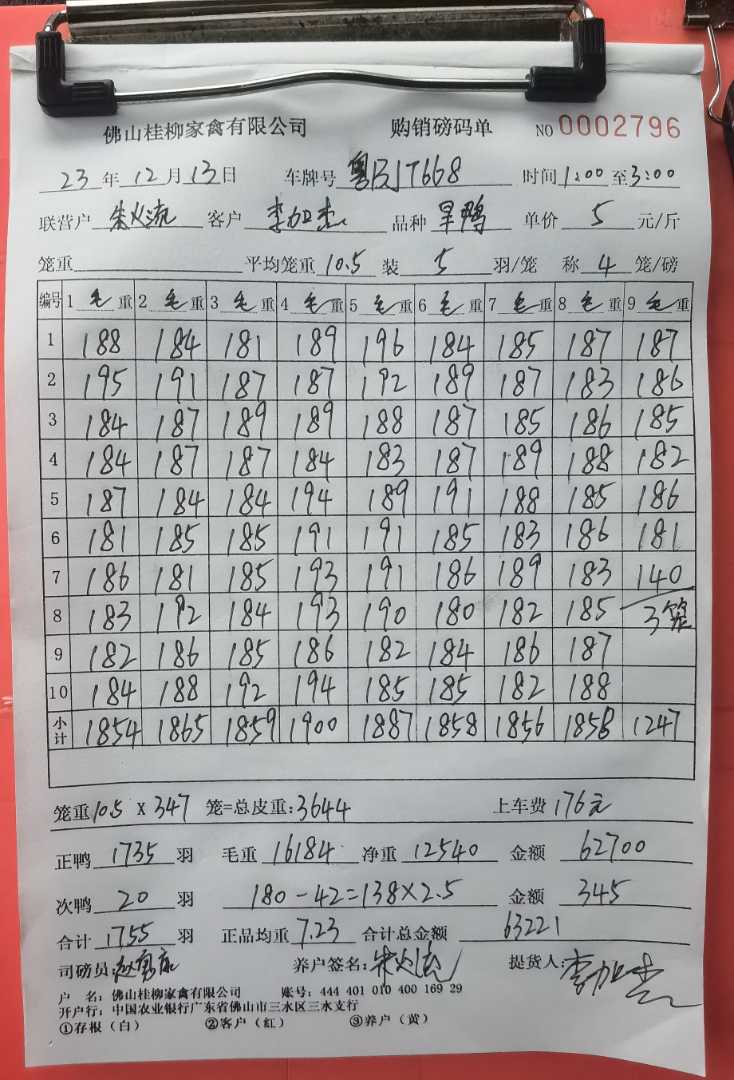 佛山桂柳家禽有限公司 购销磅码单 NO 0002796
23年12月13日 车牌号 粤BJT668 时间1:00至3:00
联营户 朱火流 客户 李加杰 品种 旱鸭 单价 5 元/斤
笼重 平均笼重 10.5 装 5 羽/笼 称 4 笼/磅
编号 1 毛重 2 毛重 3 毛重 4 毛重 5 毛重 6 毛重 7 毛重 8 毛重 9 毛重
1 188 184 181 189 196 184 185 187 187
2 195 191 187 187 192 189 187 183 186
3 184 187 189 189 188 187 185 186 185
4 184 187 187 184 183 187 189 188 182
5 187 184 184 194 189 191 188 185 186
6 181 185 185 191 191 185 183 186 181
7 186 181 185 193 191 186 189 183 140
8 183 192 184 193 190 180 182 185 3笼
9 182 186 185 186 182 184 186 187
10 184 188 192 194 185 185 182 188
小计 1854 1865 1859 1900 1887 1858 1856 1858 1247
笼重 10.5 X 347 笼=总皮重:3644 上车费 176元
正鸭 1735 羽 毛重 16184 净重 12540 金额 62700
次鸭 20 羽 180-42=138×2.5 金额 345
合计 1755 羽 正品均重 7.23 合计总金额 63221
司磅员: 养户签名: 朱火流 提货人: 李加杰
户 名: 佛山桂柳家禽有限公司 账号: 444 401 010 400 169 29
开户行: 中国农业银行广东省佛山市三水区三水支行
①存根(白) ②客户(红) ③养户(黄)